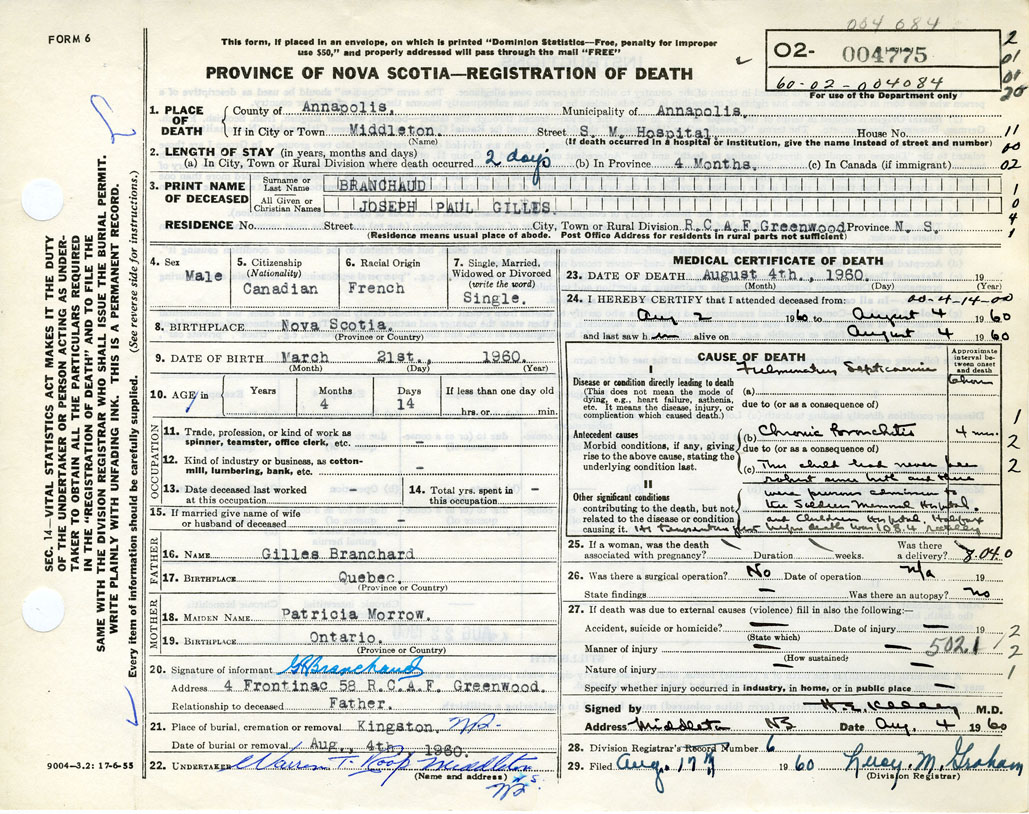 004 084
FORM 6
This form, if placed in an envelope, on which is printed "Dominion Statistics—Free, penalty for improper
use $50," and properly addressed will pass through the mail "FREE"
PROVINCE OF NOVA SCOTIA—REGISTRATION OF DEATH
O2- 004775
60-02-004084
For use of the Department only
2
01
01
20
11
00
02
1
0
4
1
1. PLACE OF DEATH
County of Annapolis. Municipality of Annapolis.
If in City or Town Middleton. Street S. M. Hospital. House No.
(Name) (If death occurred in a hospital or institution, give the name instead of street and number)
2. LENGTH OF STAY (in years, months and days)
(a) In City, Town or Rural Division where death occurred 2 days (b) In Province 4 Months. (c) In Canada (if immigrant)
3. PRINT NAME OF DECEASED
Surname or Last Name BRANCHAUD
All Given or Christian Names JOSEPH PAUL GILLES.
RESIDENCE No. Street City, Town or Rural Division R.C.A.F. Greenwood Province N. S.
(Residence means usual place of abode. Post Office Address for residents in rural parts not sufficient)
4. Sex Male
5. Citizenship (Nationality) Canadian
6. Racial Origin French
7. Single, Married, Widowed or Divorced (write the word) Single.
8. BIRTHPLACE Nova Scotia.
(Province or Country)
9. DATE OF BIRTH March 21st., 1960.
(Month) (Day) (Year)
10. AGE Years Months 4 Days 14 If less than one day old hrs. or min.
OCCUPATION
11. Trade, profession, or kind of work as
spinner, teamster, office clerk, etc. -
12. Kind of industry or business, as cotton-
mill, lumbering, bank, etc. -
13. Date deceased last worked at this occupation - 14. Total yrs. spent in this occupation -
15. If married give name of wife
or husband of deceased -
FATHER
16. NAME Gilles Branchard
17. BIRTHPLACE Quebec.
(Province or Country)
MOTHER
18. MAIDEN NAME Patricia Morrow.
19. BIRTHPLACE Ontario.
(Province or Country)
20. Signature of informant G Branchaud
Address 4 Frontinac 58 R.C.A.F. Greenwood.
Relationship to deceased Father.
21. Place of burial, cremation or removal Kingston NS-
Date of burial or removal Aug., 4th., 1960.
22. UNDERTAKER Warren T. Roop Middleton
(Name and address) N.S.
NS.
9004—3.2: 17-6-55
SEC. 14—VITAL STATISTICS ACT MAKES IT THE DUTY
OF THE UNDERTAKER OR PERSON ACTING AS UNDER-
TAKER TO OBTAIN ALL THE PARTICULARS REQUIRED
IN THE "REGISTRATION OF DEATH" AND TO FILE THE
SAME WITH THE DIVISION REGISTRAR WHO SHALL ISSUE THE BURIAL PERMIT.
WRITE PLAINLY WITH UNFADING INK. THIS IS A PERMANENT RECORD.
Every item of information should be carefully supplied. (See reverse side for instructions.)
MEDICAL CERTIFICATE OF DEATH
23. DATE OF DEATH August 4th., 1960. 19
(Month) (Day) (Year)
24. I HEREBY CERTIFY that I attended deceased from: 00-4-14-00
Aug 2 1960 to August 4 1960
and last saw h im alive on August 4 1960
CAUSE OF DEATH
Approximate interval between onset and death
I
Disease or condition directly leading to death
(This does not mean the mode of
dying, e.g., heart failure, asthenia,
etc. It means the disease, injury, or
complication which caused death.)
(a) Fulminating Septicaemia
due to (or as a consequence of)
Antecedent causes
Morbid conditions, if any, giving
rise to the above cause, stating the
underlying condition last.
(b) Chronic Bronchitis 4 mos.
due to (or as a consequence of)
(c) This child had never been
robust since birth and there
II
Other significant conditions
contributing to the death, but not
related to the disease or condition
causing it.
were previous admissions to
the Soldiers Memorial Hospital
and Children Hospital, Halifax
death was 108.4
1
2
2
25. If a woman, was the death
associated with pregnancy? Duration weeks. Was there a delivery? 8.04.0
26. Was there a surgical operation? No Date of operation n/a 19
State findings — Was there an autopsy? no
27. If death was due to external causes (violence) fill in also the following:—
Accident, suicide or homicide? — Date of injury — 19 2
(State which)
Manner of injury — 502.1 1/2
(How sustained)
Nature of injury — 1
Specify whether injury occurred in industry, in home, or in public place —
Signed by H. E. Kelley M.D.
Address Middleton NS Date Aug. 4 1960
28. Division Registrar's Record Number 6
29. Filed Aug. 17th 1960 Lucy. M. Graham
(Division Registrar)